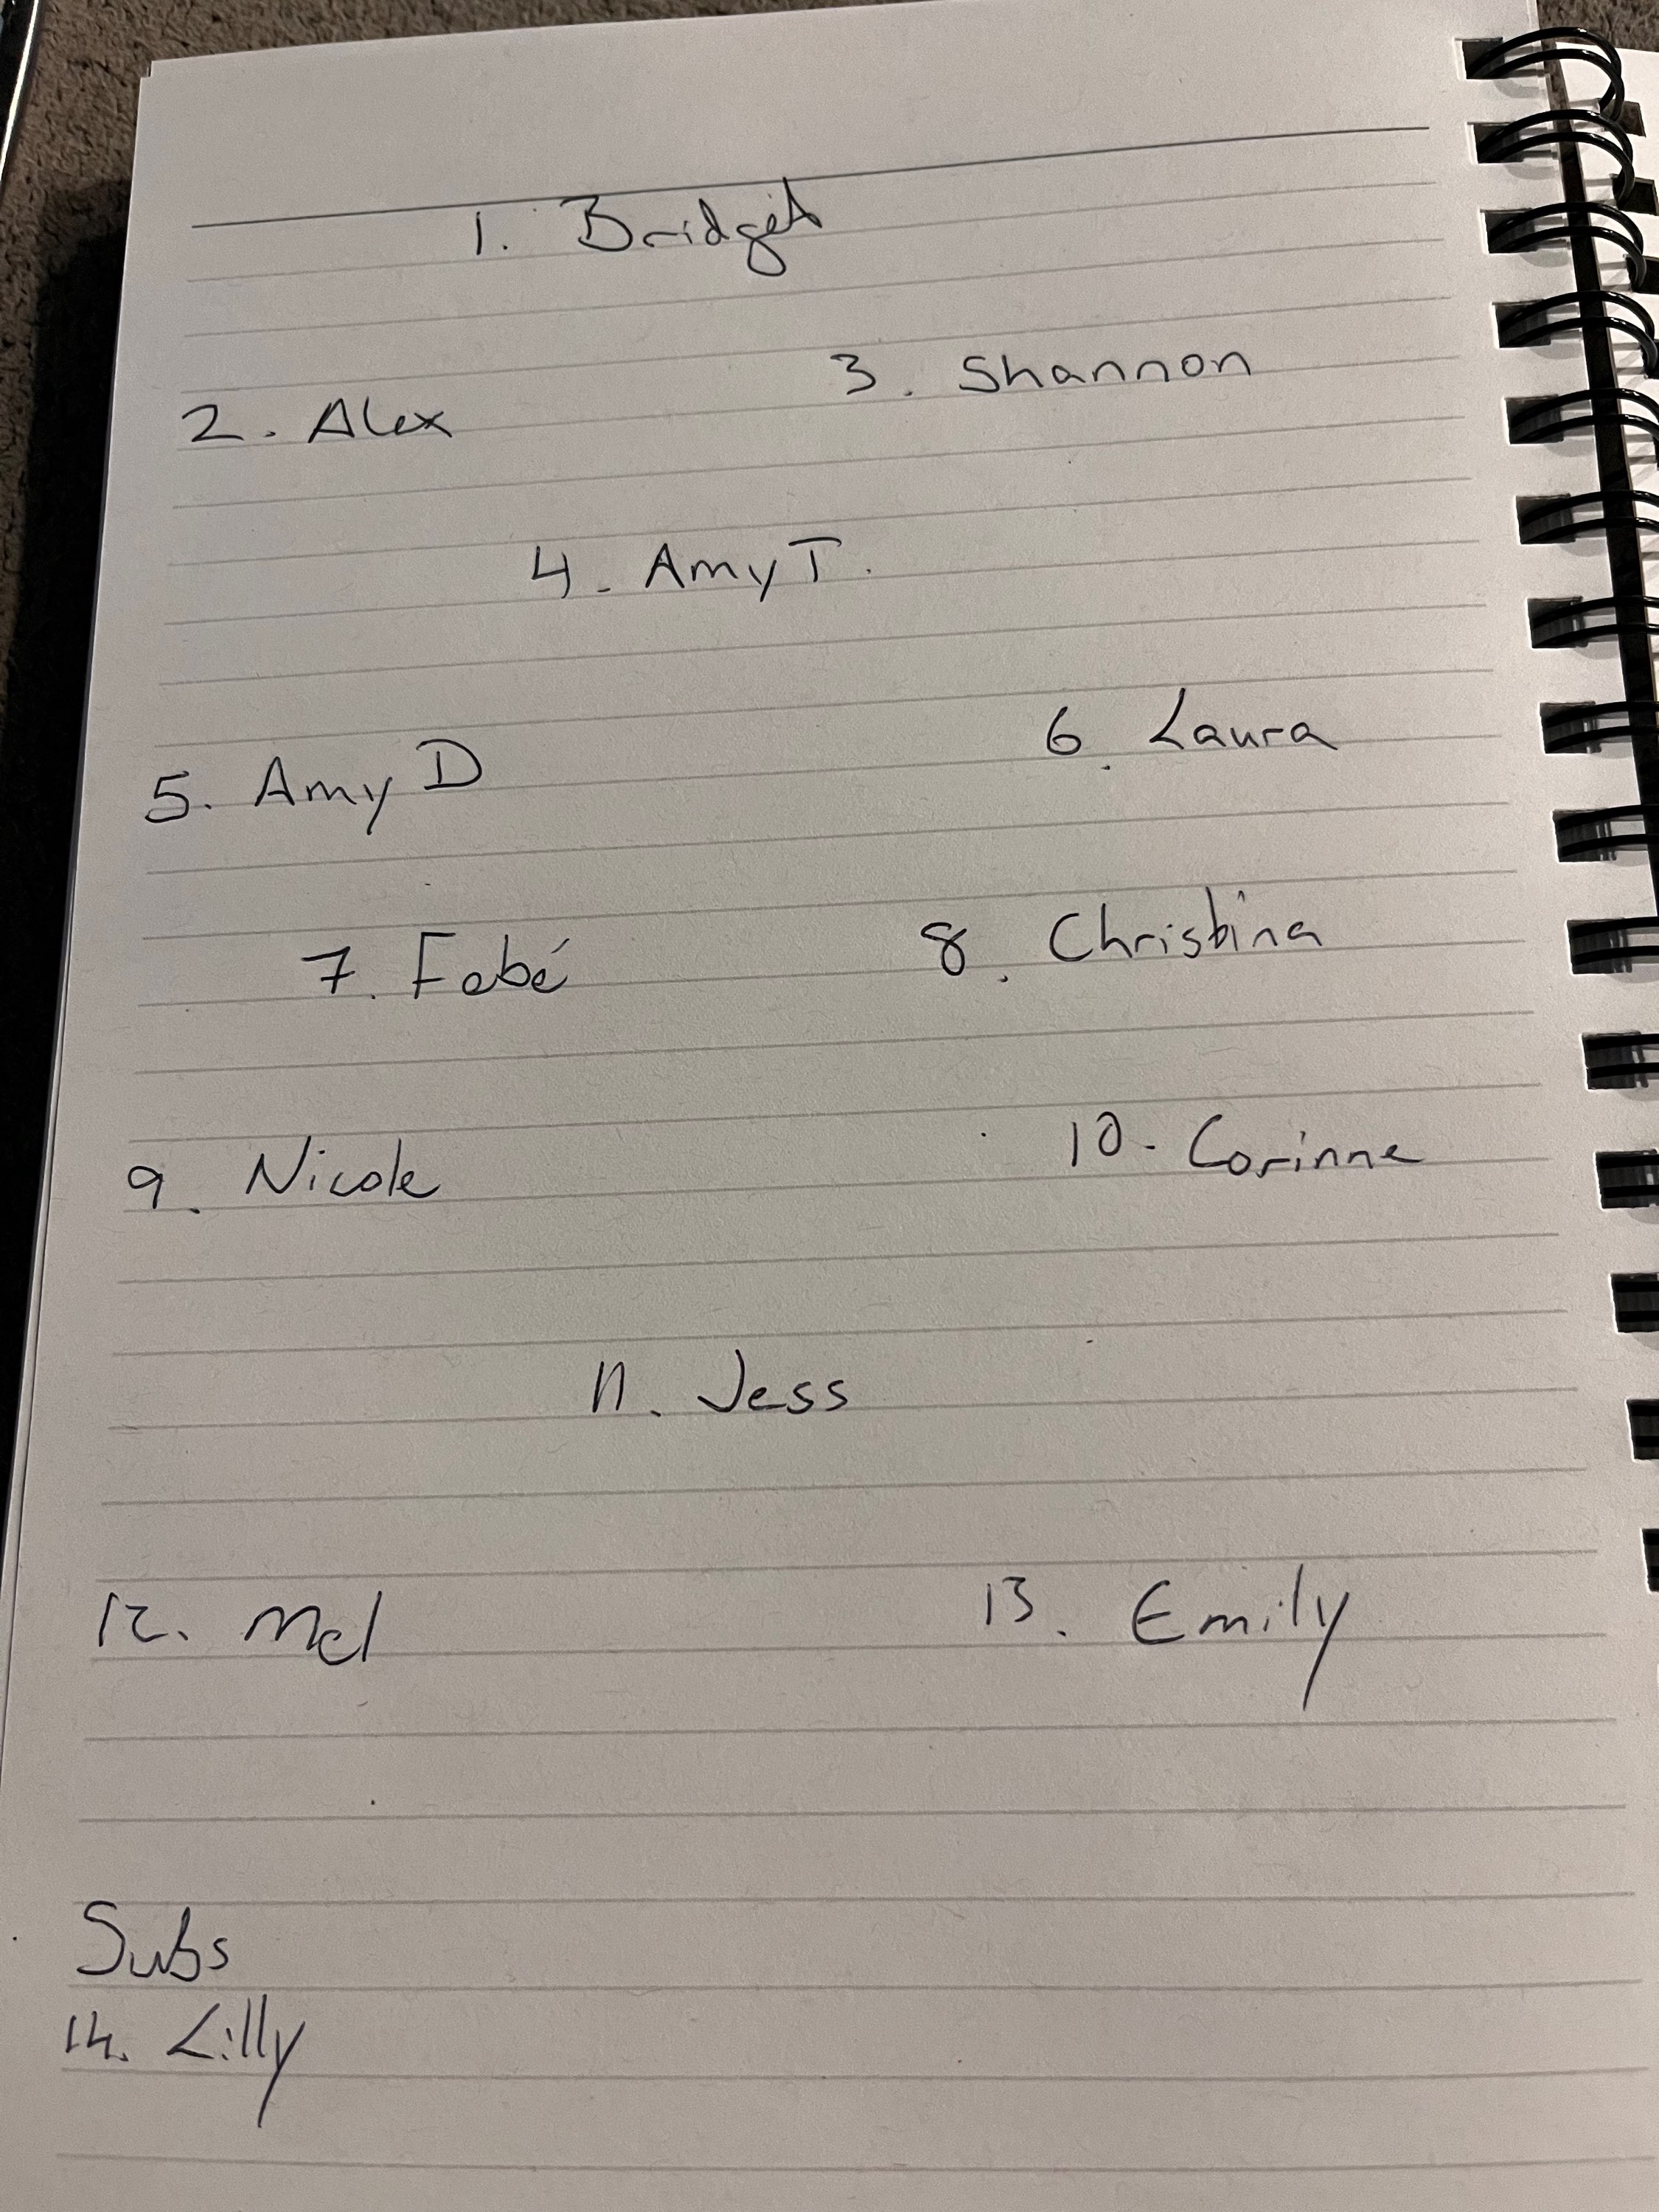 1. Bridget
2. Alex
3. Shannon
4. Amy T.
5. Amy D
6. Laura
7. Febé
8. Christina
9. Nicole
10. Corinne
11. Jess
12. Mel
13. Emily
Subs
14. Lilly